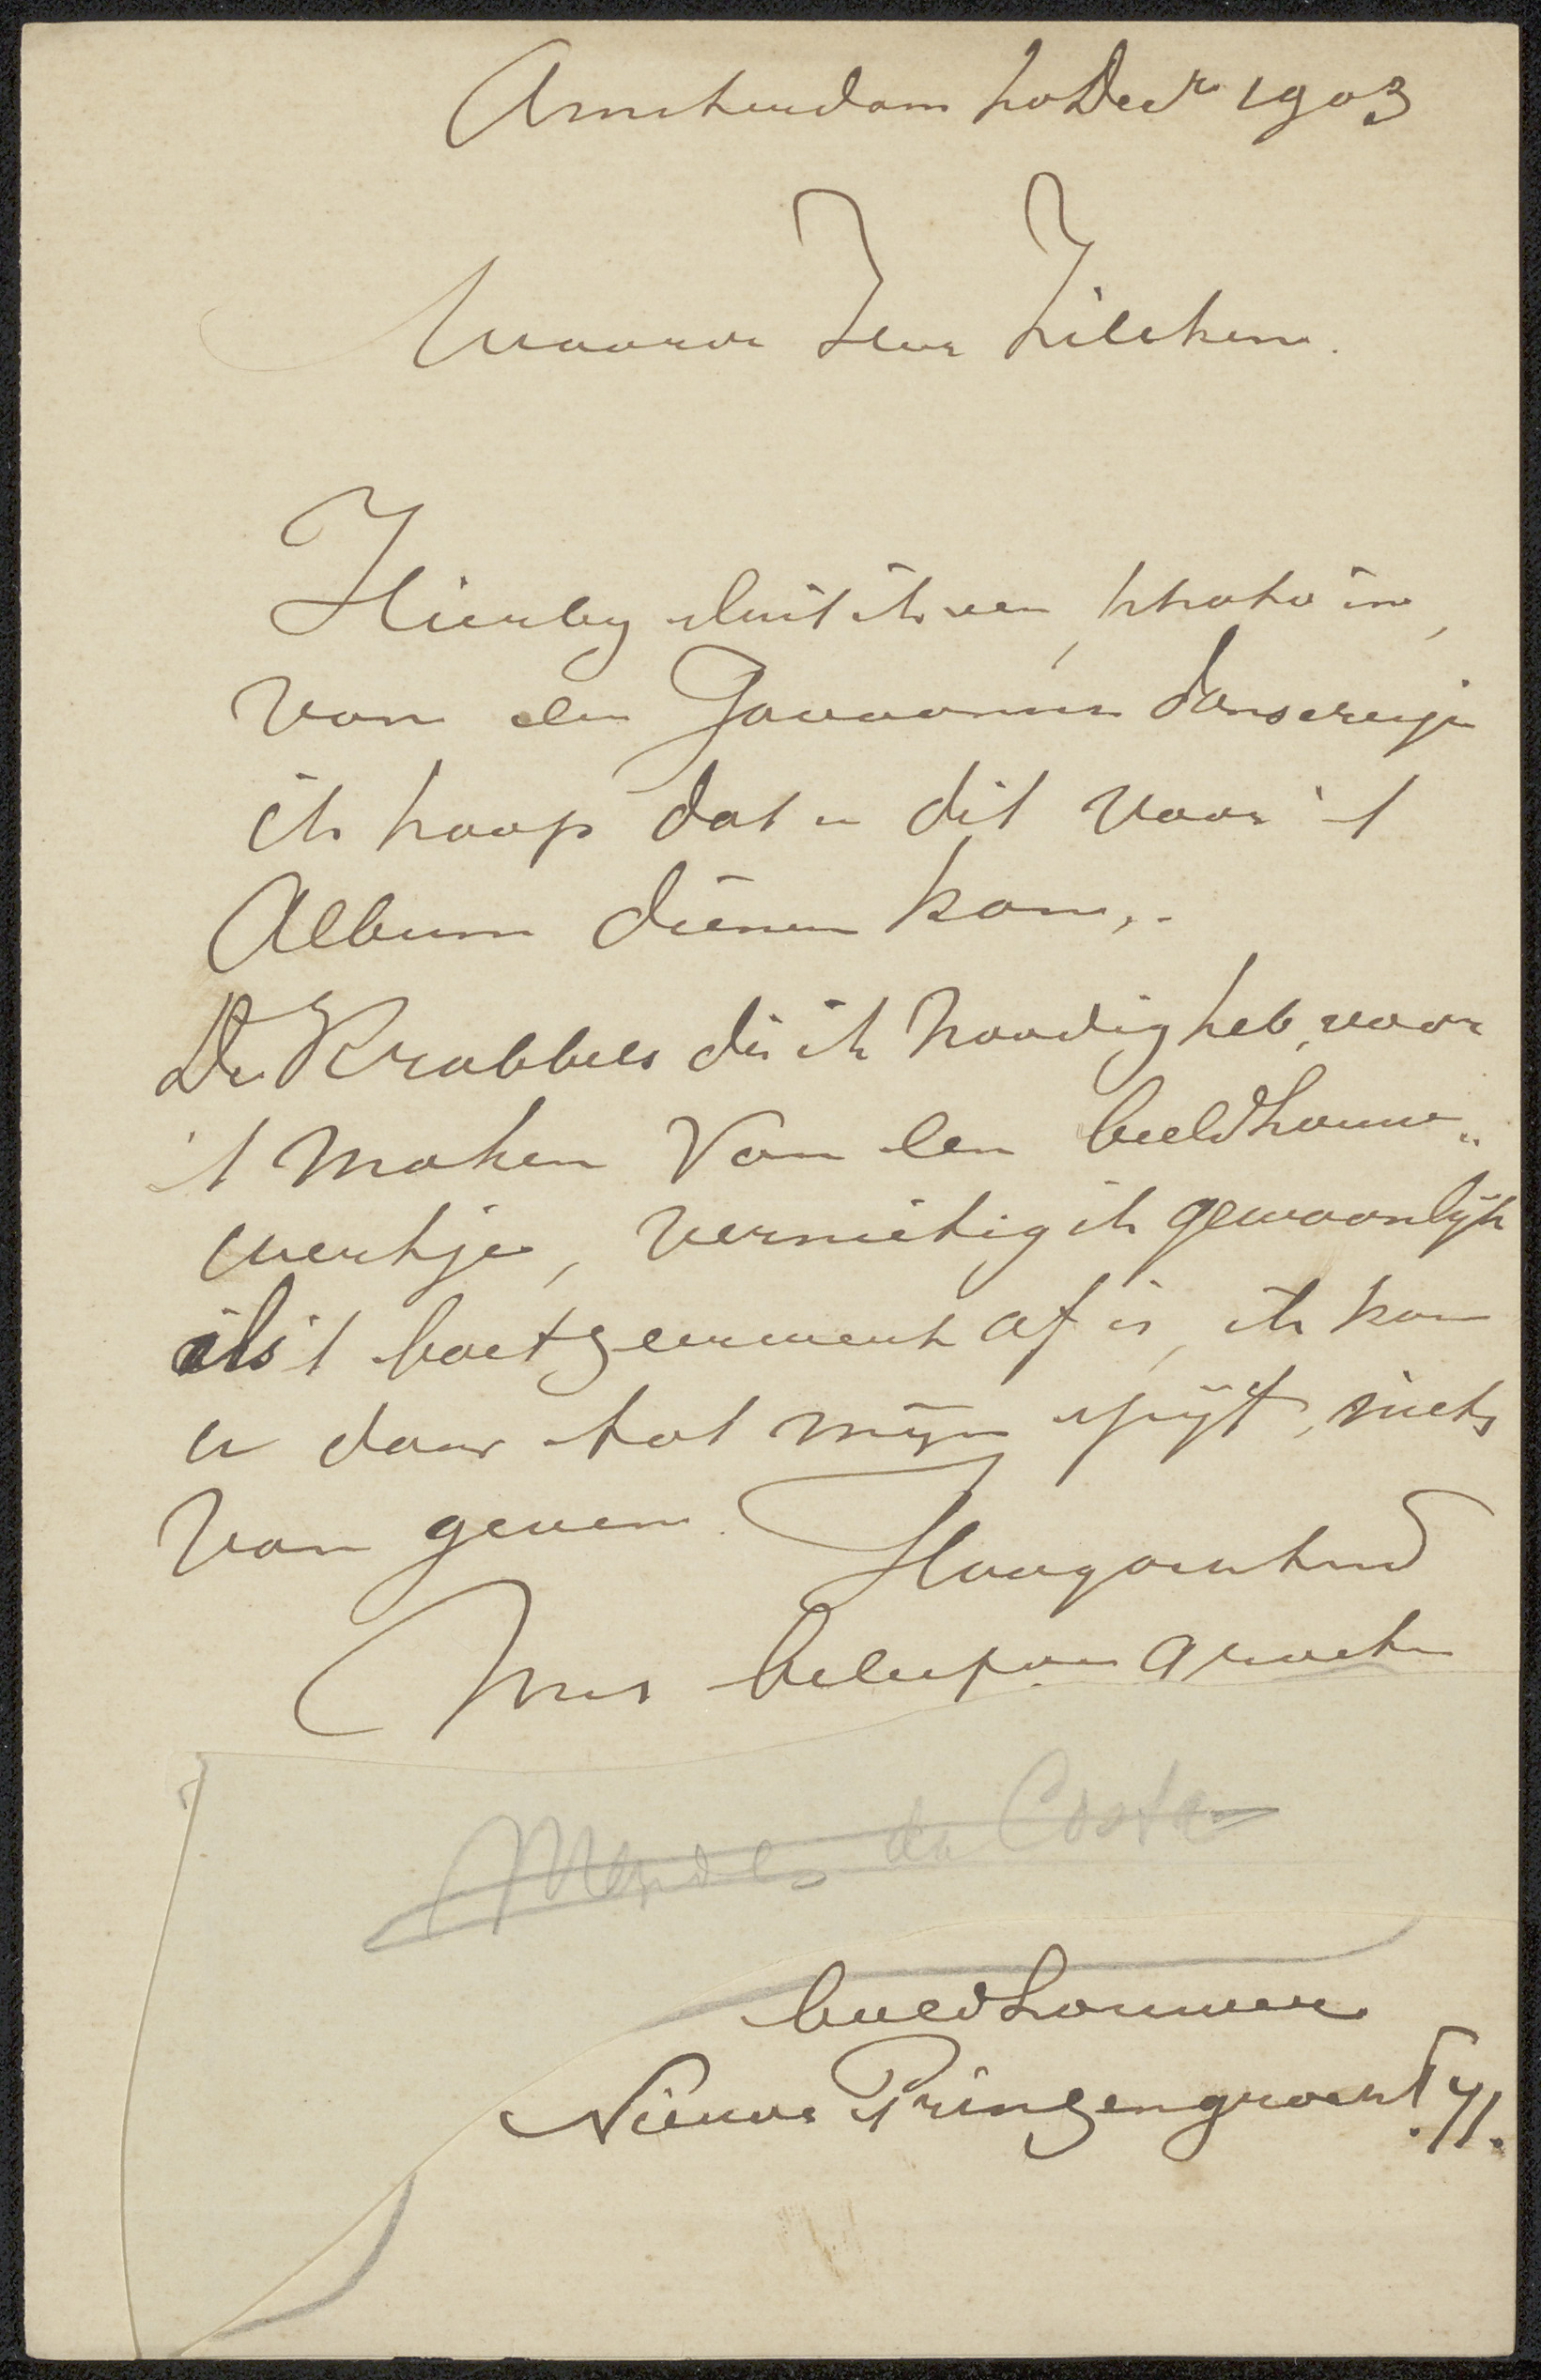 Amsterdam 20 Decr 1903
Waarde Heer Zilcken.
Hierby sluit ik een photo in,
van de Javaanse danseresje
ik hoop dat u dit voor 't
Album dienen kan,.
De Krabbels die ik noodig heb, voor
't maken van een beeldhouw„
werkje, vernietig ik gewoonlijk
als 't boetzeerwerk af is, ik kan
u daar tot mijn spijt, niets
van geven. Hoogachtend
Met beleefde groete
Mendes da Costa
beeldhouwer
Nieuwe Prinzengracht 41.